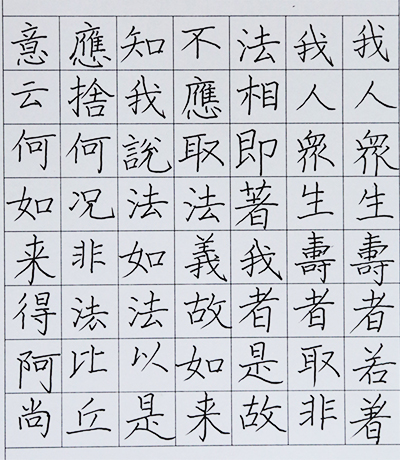 我人眾生壽者若著
我人眾生壽者取非
法相即著我者是故
不應取法義故如来
知我說法如法以是
應捨何况非法比丘
意云何如来得阿尚